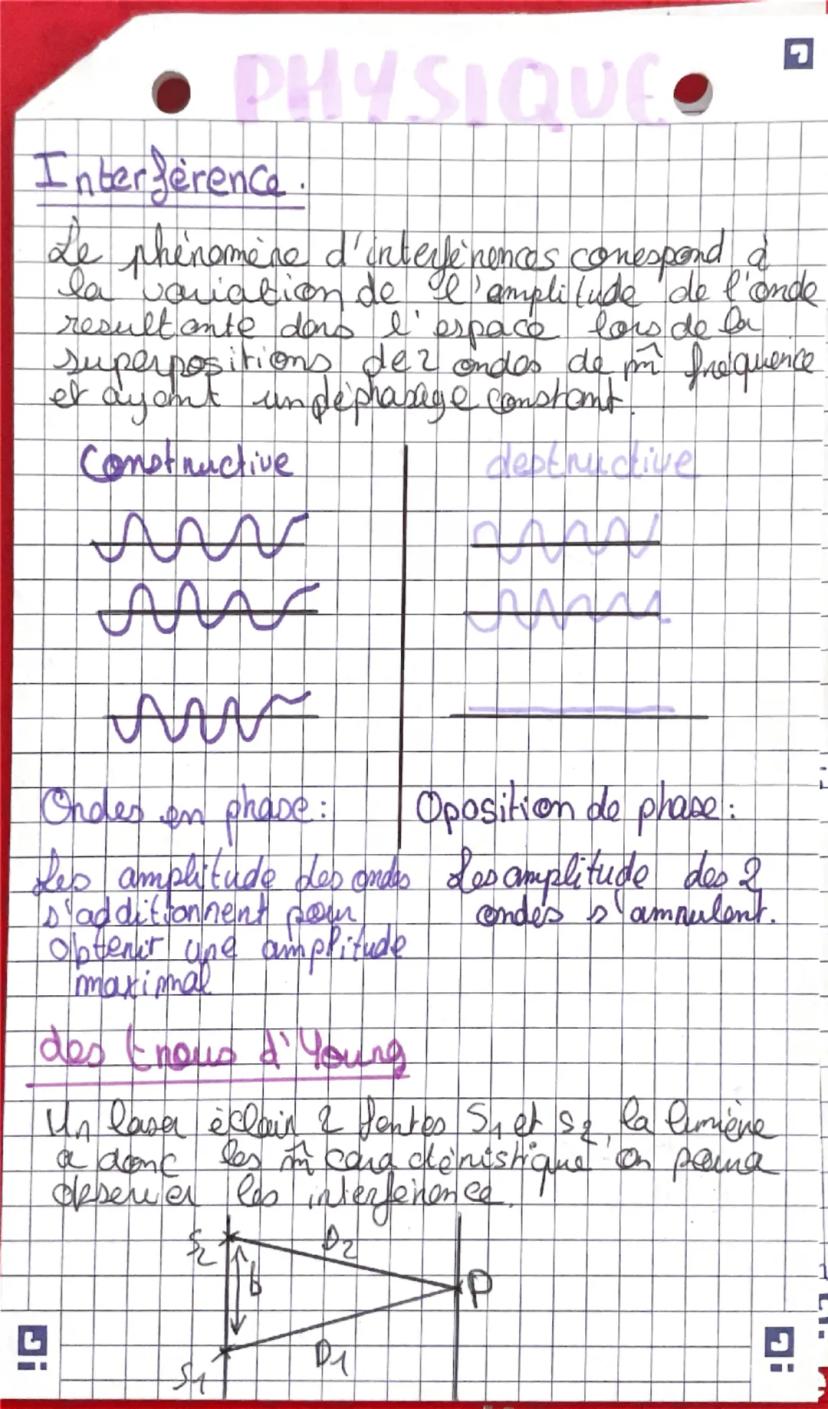 PHYSIQUE
Interférence.
Le phénomène d'interférences correspond à
la variation de l'amplitude de l'onde
resultante dans l'espace lors de la
superpositions de 2 ondes de m̂ fréquence
et ayant un déphasage constant.
Constructive
destructive
Ondes en phase :
Les amplitude des ondes
s'additionnent pour
obtenir une amplitude
maximal
Oposition de phase :
Les amplitude des 2
ondes s'annulent.
des trous d'Young
Un laser éclair 2 fentes S1 et S2, la lumière
a donc les m̂ caractéristique on pourra
observer les interférence.
S2
D2
b
P
S1
D1